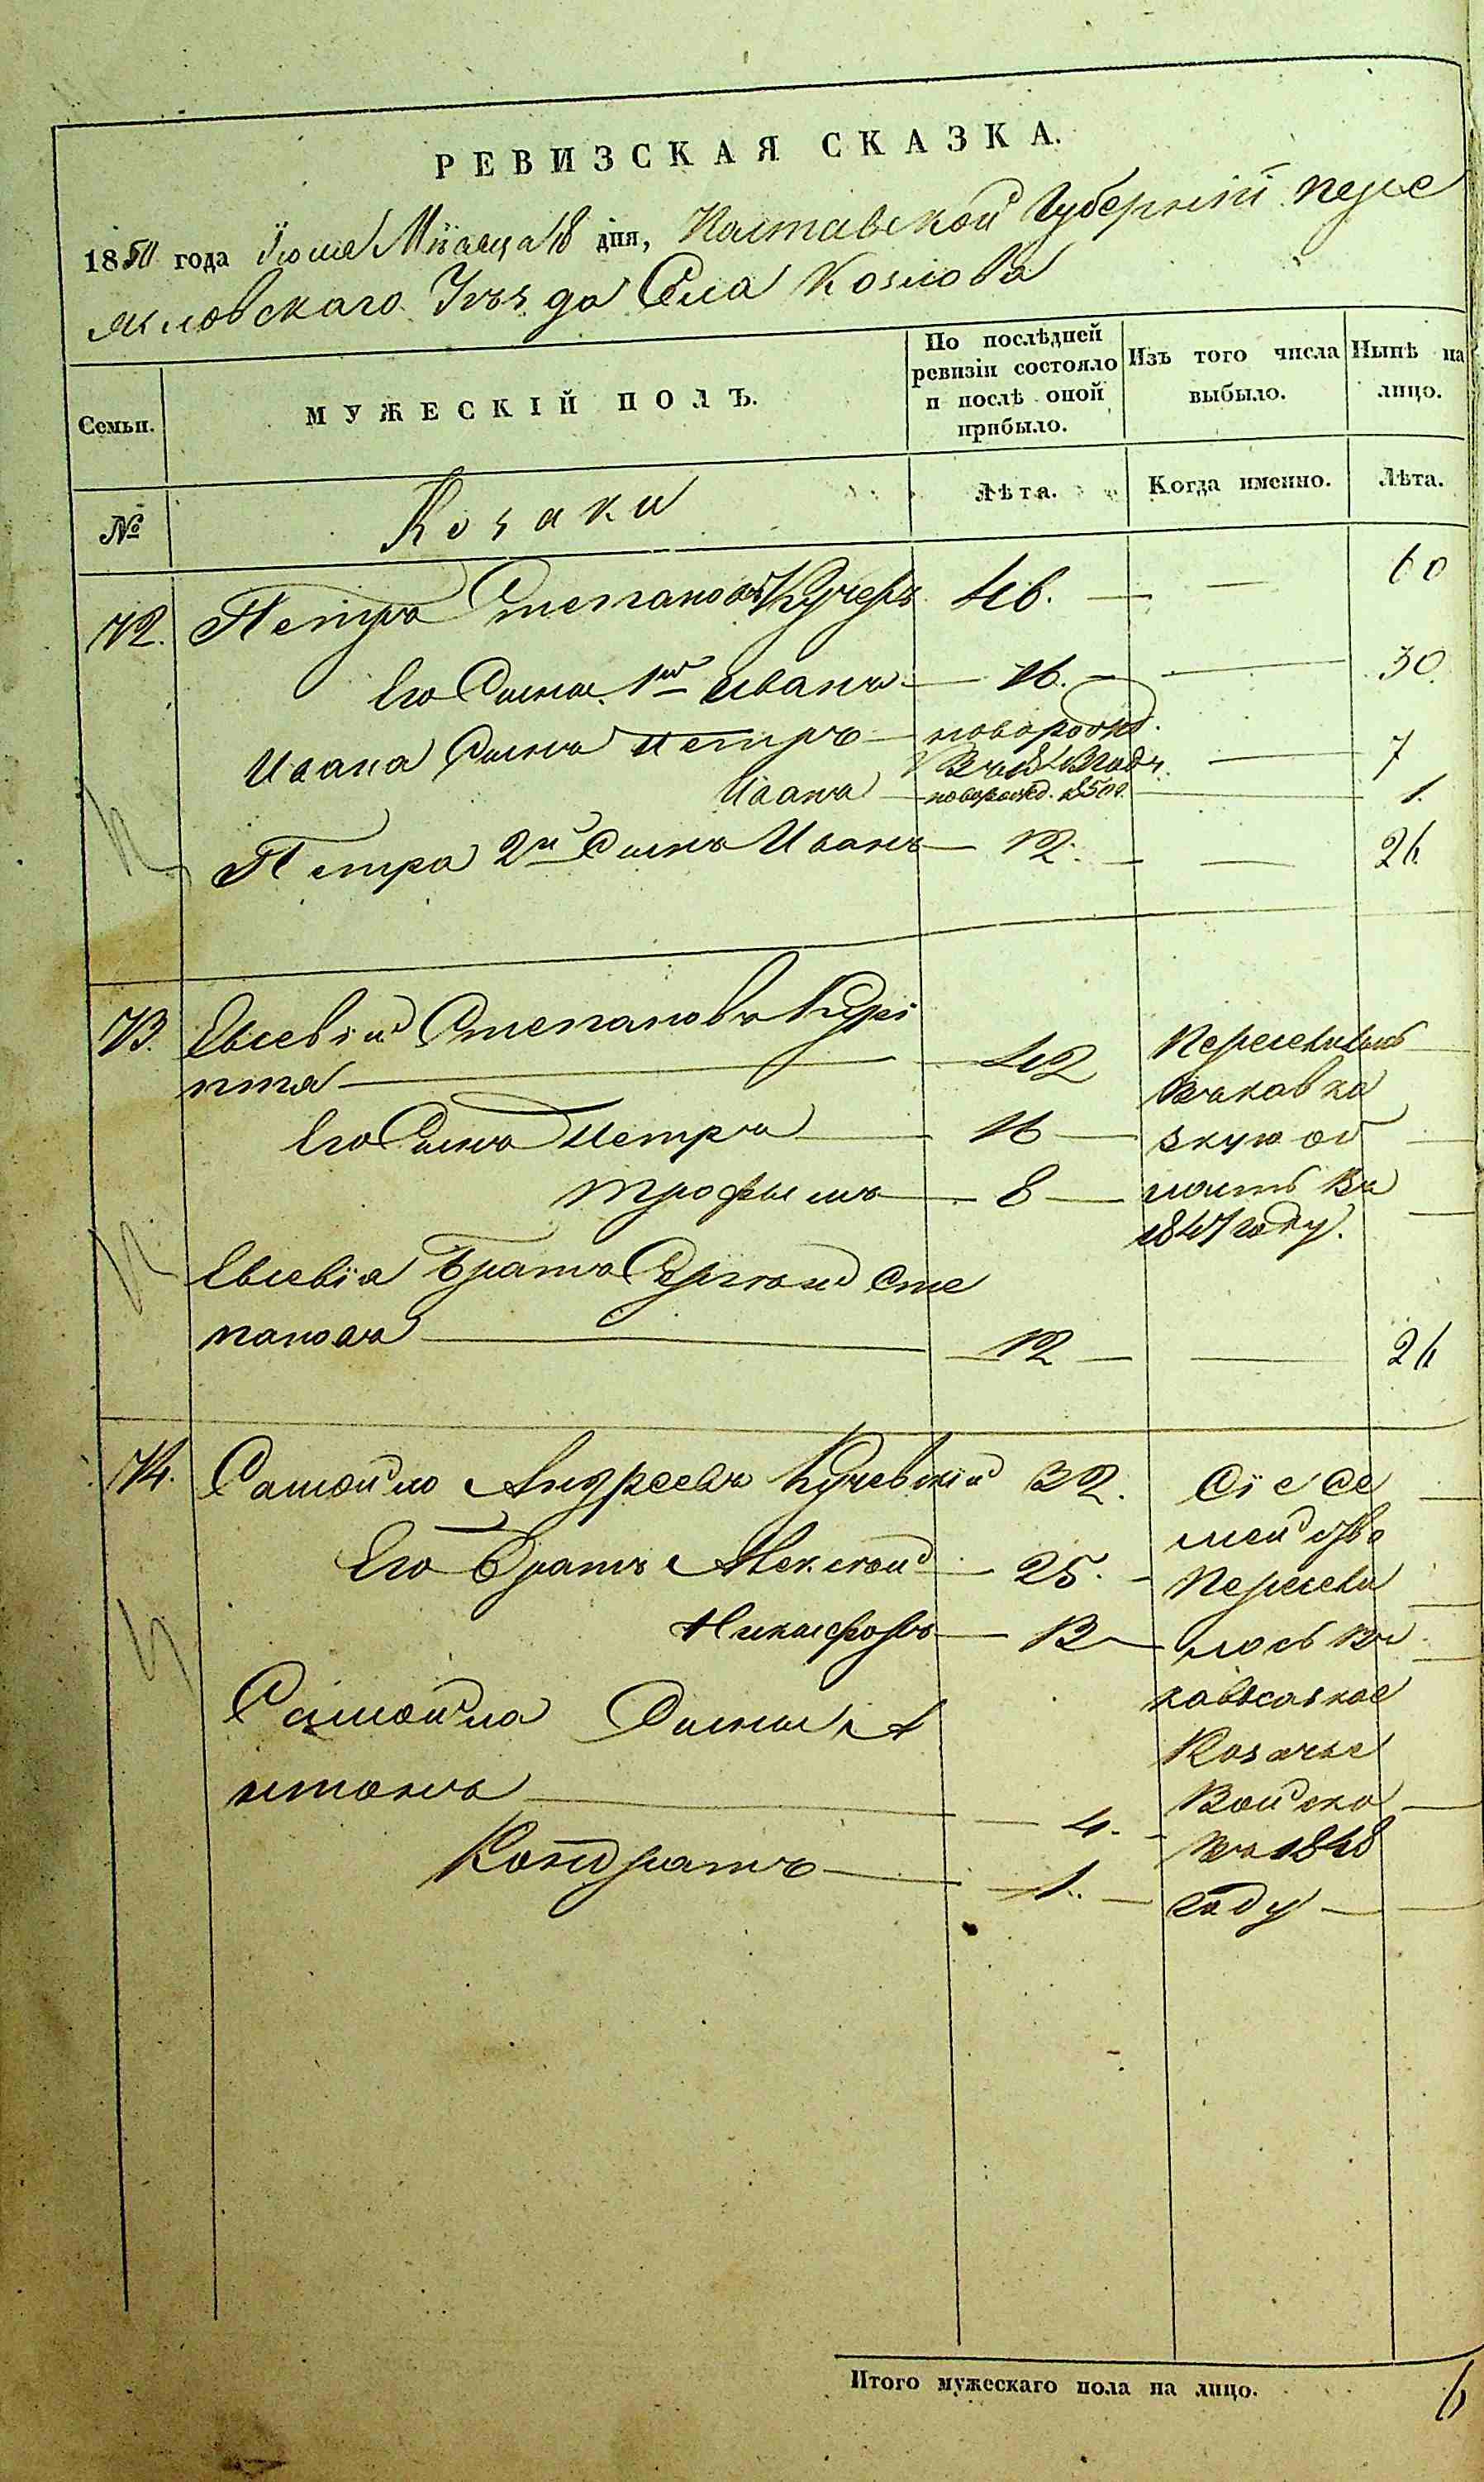 РЕВИЗСКАЯ СКАЗКА.
1850 года Іюля Мѣсяца 18 дня, Полтавской Губерніи пере
яславскаго Уѣзда Села Козлова
Семьи.
МУЖЕСКІЙ ПОЛЪ.
По послѣдней ревизіи состояло и послѣ оной прибыло.
Изъ того числа выбыло.
Нынѣ на лицо.
№
Козаки
Лѣта.
Когда именно.
Лѣта.
72. Петръ Степановъ Кучеръ 46. — — 60
Его Сыны 1й Иванъ — 16. — — 30.
Ивана Сынъ Петръ — новорожд.
— 7
Иванъ — новорожд. 1850. — 1.
Петра 2й Сынъ Иванъ — 12. — — 26
73. Евсевій Степановъ
— 42 Переселились
Его Сынъ Петръ — 16 — въ кавка
зкую об
Трофимъ — 8 — ласть въ
1847 году.
Евсевія Братъ Сергѣй Сте
пановъ — 12 — — 26
74. Самойло Андреевъ 32. Сіе се
мейство
Его Братъ Алексѣй — 25. — Пересели
Никифоръ — 13 — лось въ
кавказкое
Самойла Сыны А
Козачье
нтонъ — 4. — Войско
въ 1848
Кондратъ — 1. — году —
Итого мужескаго пола на лицо. 6